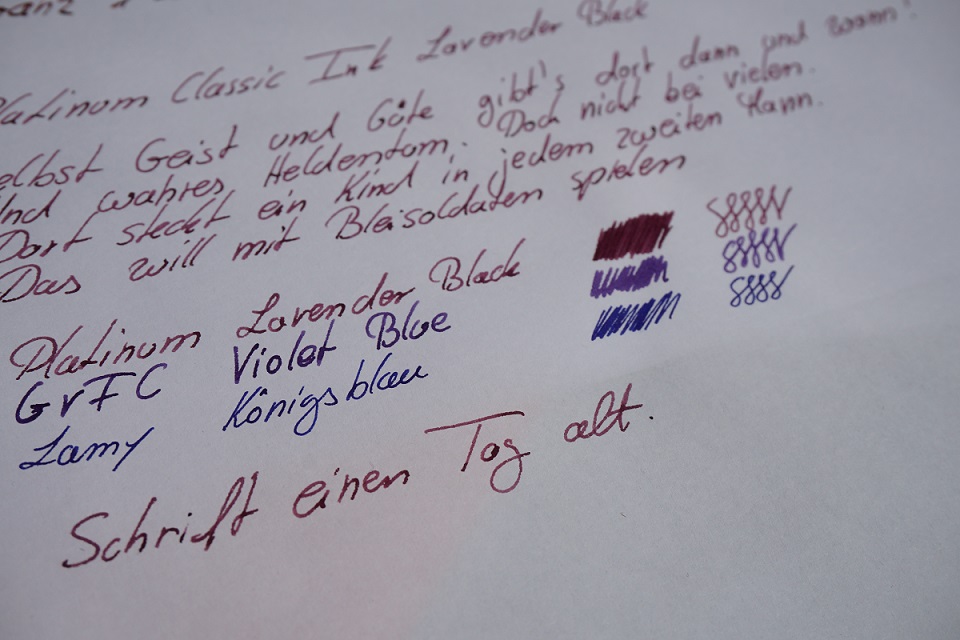 Platinum Classic Ink Lavender Black
Selbst Geist und Güte gibt's dort dann und wann!
Und wahres Heldentum. Doch nicht bei vielen.
Dort steckt ein Kind in jedem zweiten Mann.
Das will mit Bleisoldaten spielen
Platinum Lavender Black
GvFC Violet Blue
Lamy Königsblau
Schrift einen Tag alt.